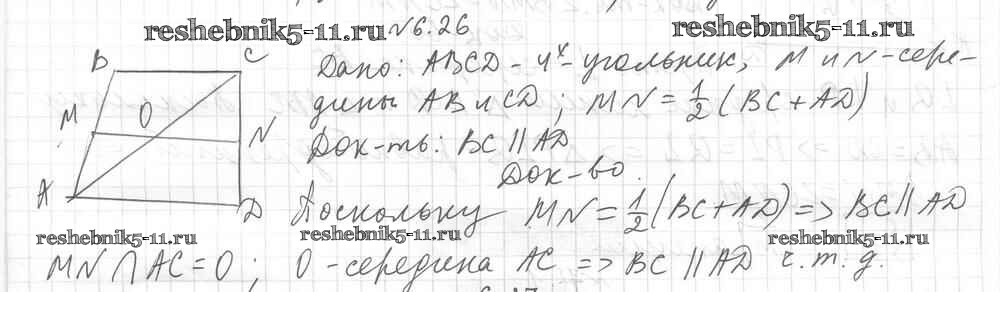 reshebnik5-11.ru №6.26 reshebnik5-11.ru
B C
Дано: ABCD - 4х-угольник, M и N - сере-
дины AB и CD; MN = 1/2 (BC + AD)
M O N
Док-ть: BC || AD
Док-во.
A D
Поскольку MN = 1/2 (BC + AD) => BC || AD
reshebnik5-11.ru reshebnik5-11.ru reshebnik5-11.ru
MN ∩ AC = O; O - середина AC => BC || AD ч.т.д.